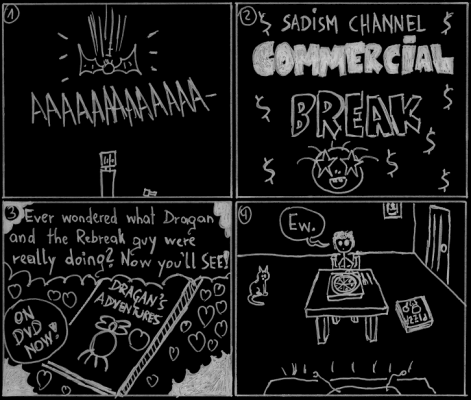 1
AAAAAAAAAAAA-
2
SADISM CHANNEL
COMMERCIAL
BREAK
3
Ever wondered what Dragan
and the Rebreak guy were
really doing? Now you'll SEE!
DRAGAN'S
ADVENTURES
ON
DVD
NOW!
4
Ew.
PIZZA